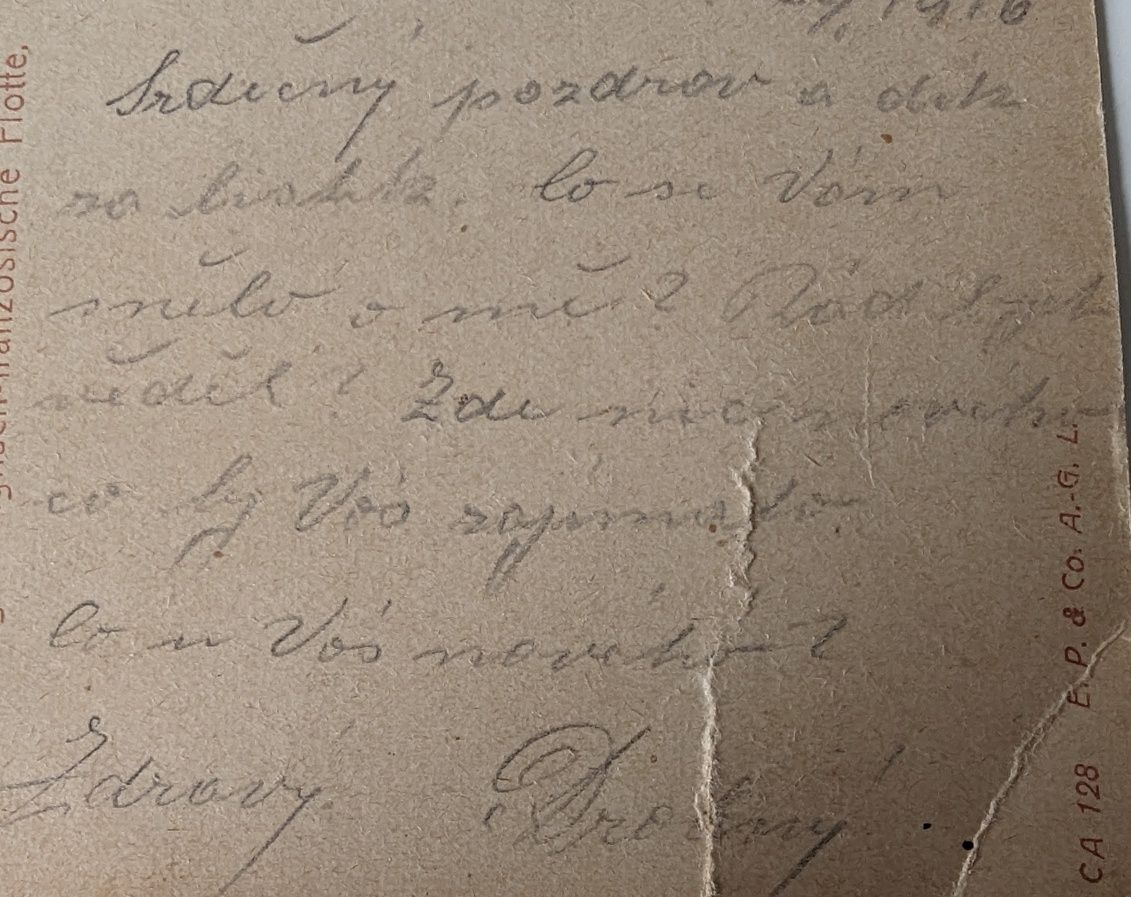 1916
Srdečný pozdrav a dík
za lístek. Co se Vám
snělo o mě? Rád bych
věděl? Zde nic nového
co by Vás zajímalo.
Co u Vás nového?
Zdravý Drobný
französische Flotte,
CA 128 E. P. & Co. A.-G. L.